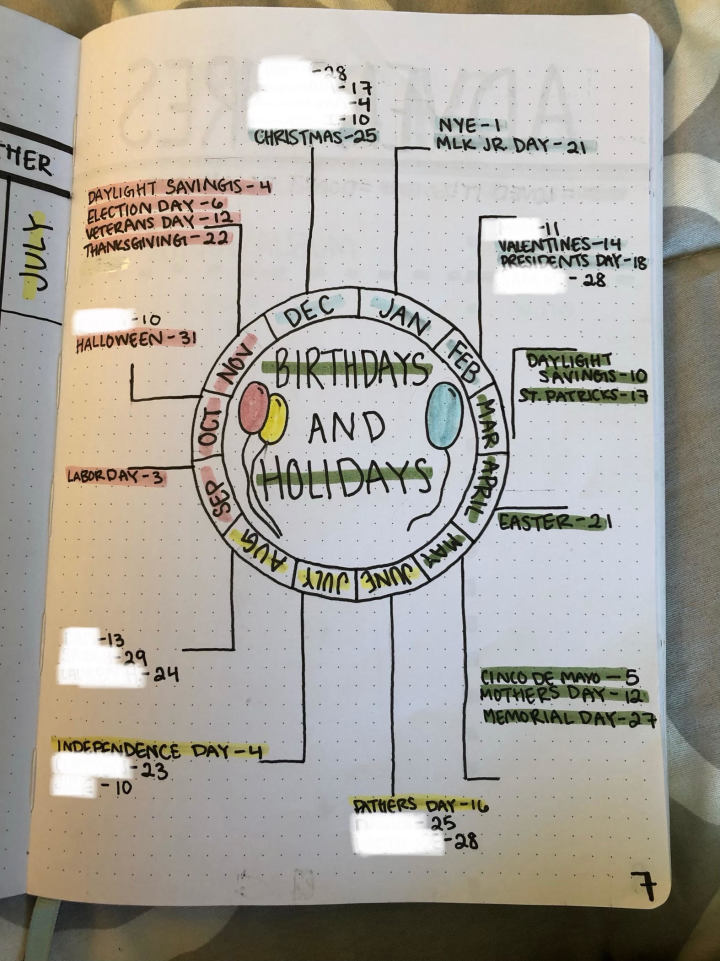 THER
JULY
-28
-17
-4
-10
CHRISTMAS-25
NYE-1
MLK JR. DAY-21
-11
VALENTINES-14
PRESIDENTS DAY-18
-28
DAYLIGHT
SAVINGS-10
ST. PATRICKS-17
EASTER-21
CINCO DE MAYO-5
MOTHERS DAY-12
MEMORIAL DAY-27
FATHERS DAY-16
25
-28
INDEPENDENCE DAY-4
-23
-10
-13
-29
-24
LABOR DAY-3
-10
HALLOWEEN-31
DAYLIGHT SAVINGS-4
ELECTION DAY-6
VETERANS DAY-12
THANKSGIVING-22
JAN
FEB
MAR
APRIL
MAY
JUNE
JULY
AUG
SEP
OCT
NOV
DEC
BIRTHDAYS
AND
HOLIDAYS
7